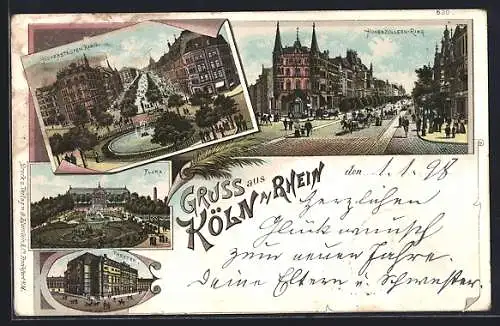 630
HOHENSTAUFEN-RING
HOHENZOLLERN-RING
FLORA
THEATER
GRUSS aus
KÖLN A/RHEIN
den 1.1.98
Herzlichen
Glückwunsch
zum neuen Jahre.
Deine Eltern u Schwester.